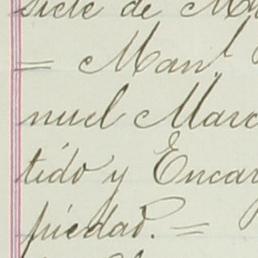 siete de
= Man.l
nuel Marc
tido y Encar
piedad. =